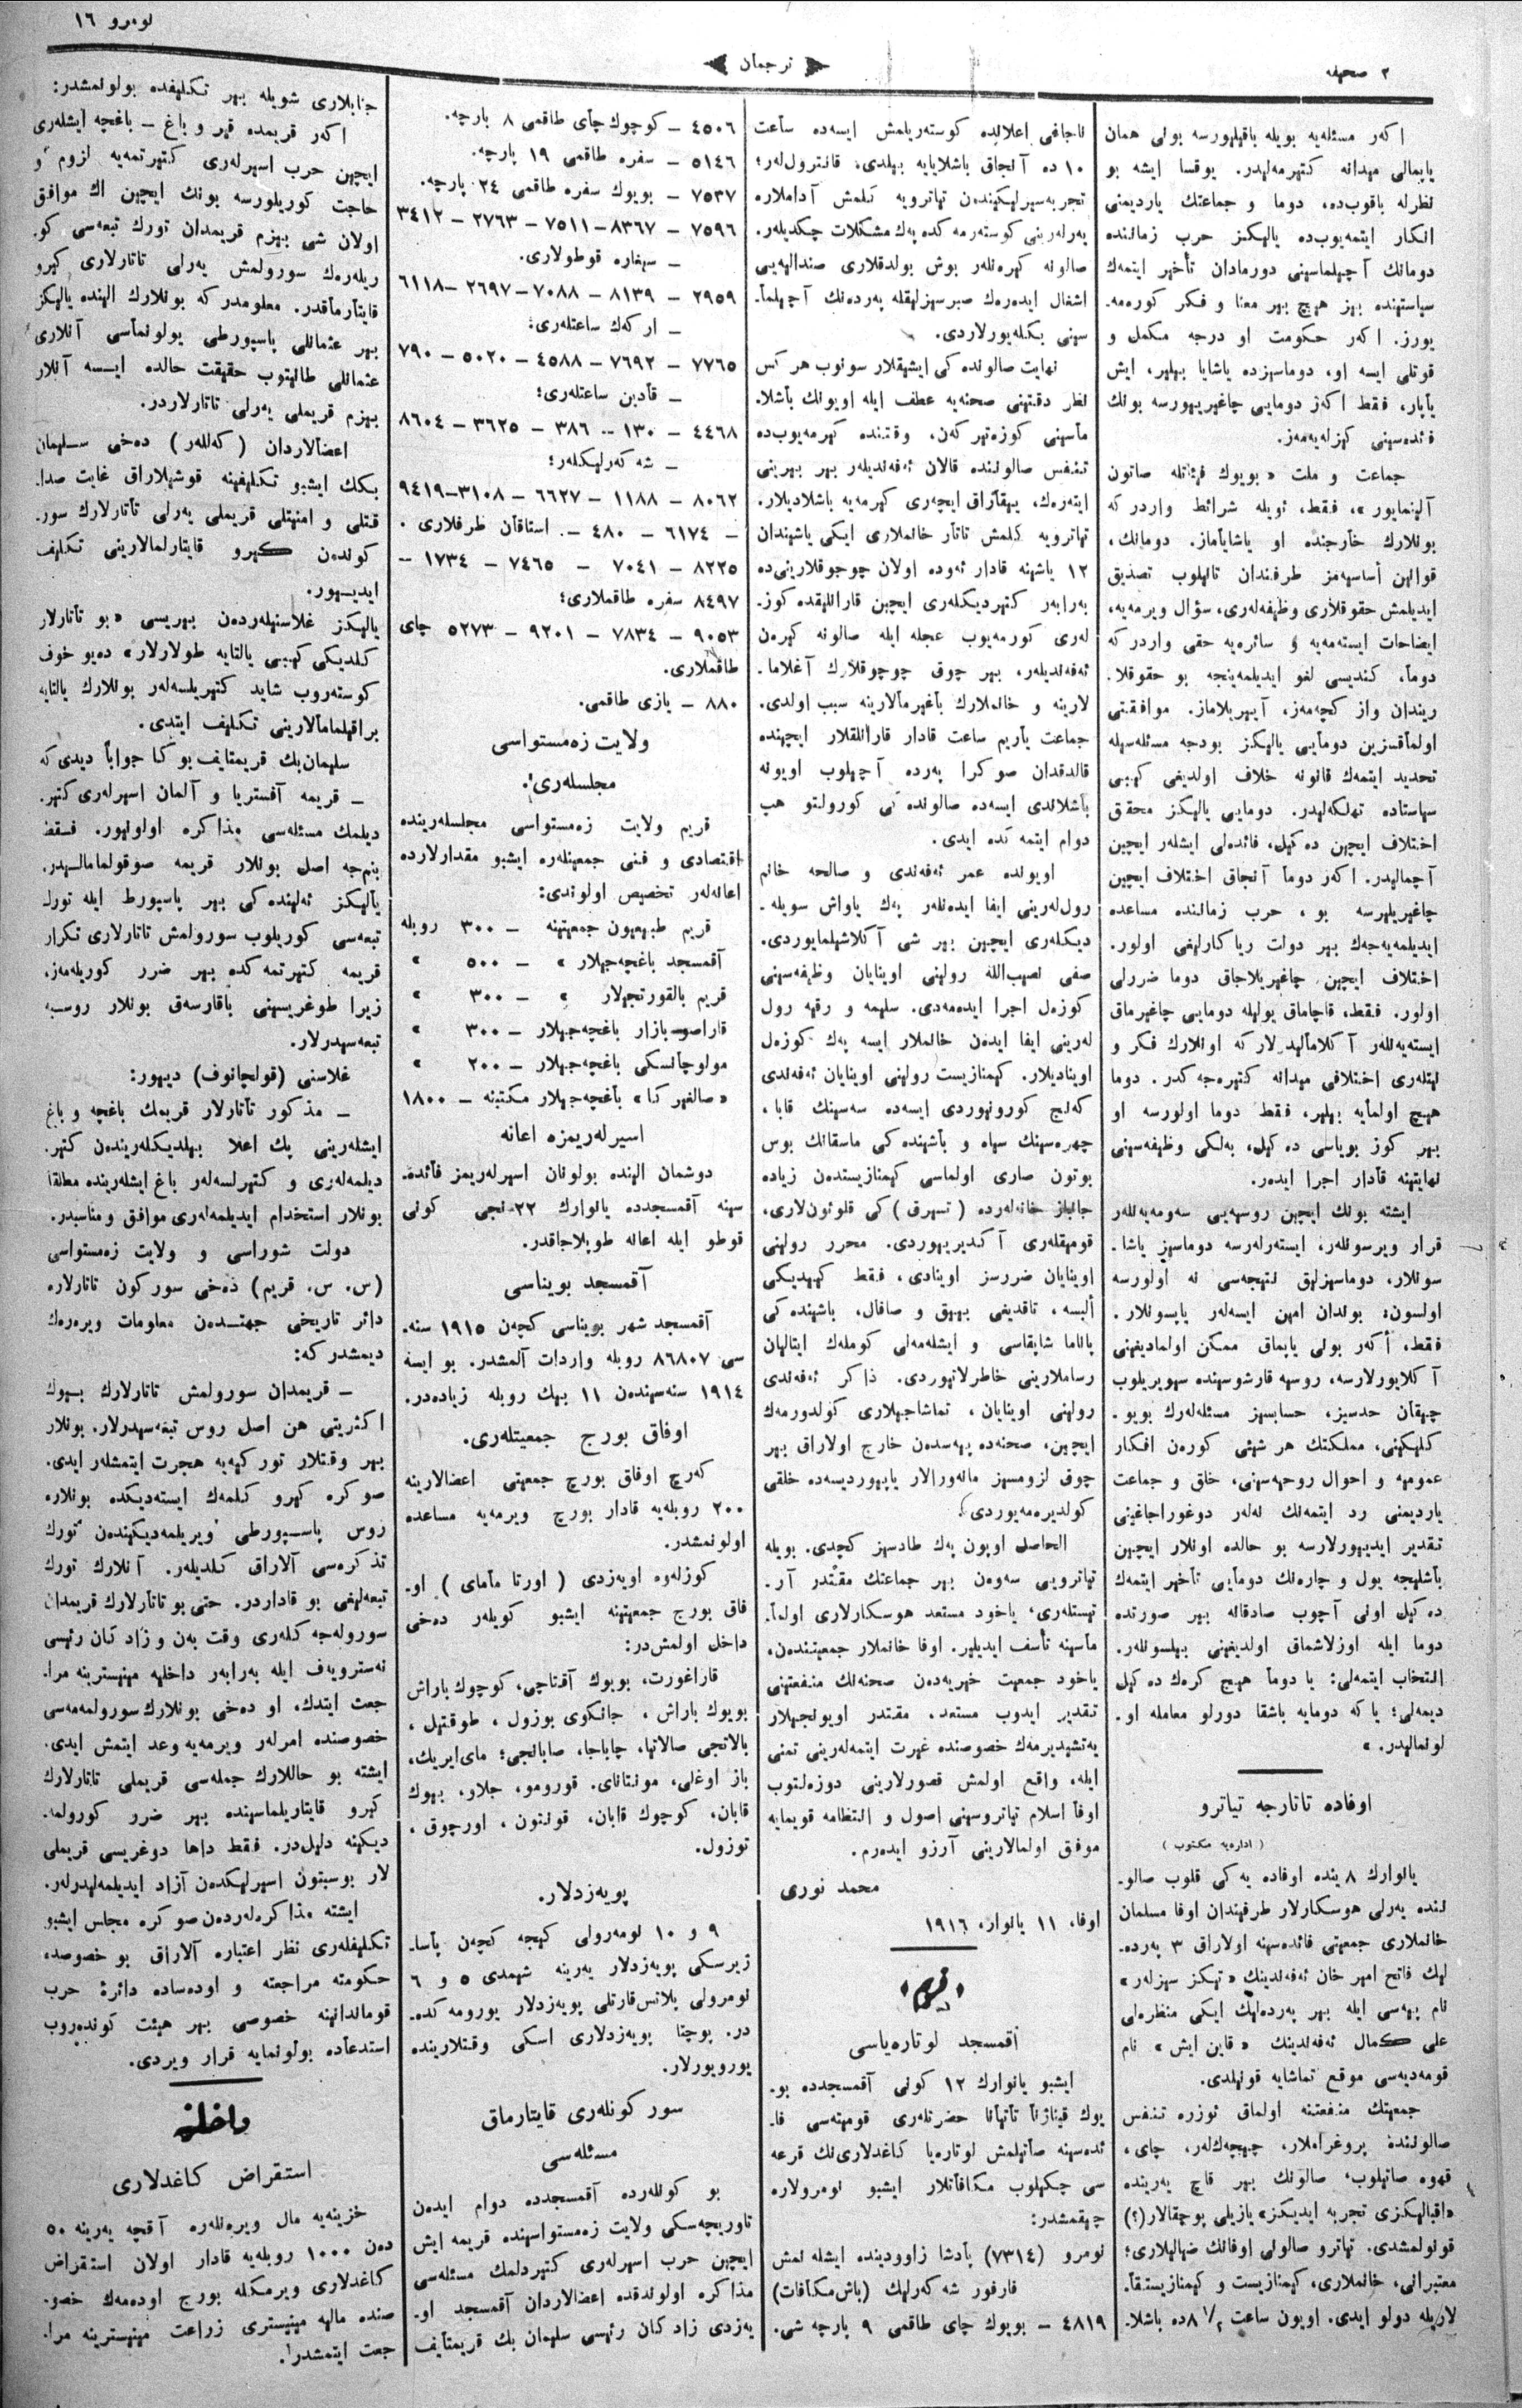 ٢ صحیفه
ترجمان
نومرو ١٦
اكر مسئله‌یه بویله باقیلیورسه بونی همان
یاپمالی میدانه كتیرمه‌لیدر. یوقسا ایشه بو
نظرله باقوب‌ده، دوما و جماعتك یاردیمنی
انكار ایتمه‌یوب‌ده یالیكز حرب زماننده
دومانك آچیلماسینی دورمادان تأخیر ایتمه‌ك
سیاستنده بیز هیچ بیر معنا و فكر كوره‌مه-
یورز. اكر حكومت او درجه مكمل و
قوتلی ایسه او، دوماسیزده یاشایا بیلیر، ایش
یاپار، فقط اكر دومایی چاغیریورسه بونك
فائده‌سینی كیزله‌یه‌مه‌ز.
جماعت و ملت «بویوك فیئاتله صاتون
آلینمایور»، فقط، ئویله شرائط واردر كه
بونلارك خارجنده او یاشایاماز. دومانك،
قوانین أساسیه‌مز طرفندان تانیلوب تصدیق
ایدیلمش حقوقلاری وظیفه‌له‌ری، سؤال ویرمه‌یه،
ایضاحات ایسته‌مه‌یه و سائره‌یه حقی واردر كه
دوما، كندیسی لغو ایدیلمه‌ینجه بو حقوقلا-
ریندان واز كچه‌مه‌ز، آییریلاماز. موافقتی
اولماقسزین دومایی یالیكز بودجه مسئله‌سیله
تحدید ایتمه‌ك قانونه خلاف اولدیغی كیبی
سیاستاده تهلكه‌لیدر. دومایی یالیكز محقق
اختلاف ایچین ده‌كیل، فائده‌لی ایشلر ایچین
آچمالیدر. اكر دوما آنجاق اختلاف ایچین
چاغیریلیرسه بو، حرب زماننده مساعده
ایدیلمه‌یه‌جه‌ك بیر دولت ریاكارلیغی اولور.
اختلاف ایچین چاغیریلاجاق دوما ضررلی
اولور. فقط، قاچاماق یولیله دومایی چاغیرماق
ایسته‌یه‌نله‌ر آكلامالیدرلار كه اونلارك فكر و
نیتله‌ری اختلافی میدانه كتیره‌جه‌كدر. دوما
هیچ اولمایه بیلیر، فقط دوما اولورسه او
بیر كوز بویاسی ده‌كیل، به‌لكی وظیفه‌سینی
نهایتینه قادار اجرا ایده‌ر.
ایشته بونك ایچین روسیه‌یی سه‌ومه‌یه‌نله‌ر
قرار ویرسونله‌ر، ایسته‌رله‌رسه دوماسیز یاشا-
سونلار، دوماسیزلیق نتیجه‌سی نه اولورسه
اولسون؛ بوندان امین ایسه‌له‌ر یاپسونلار.
فقط، أكه‌ر بونی یاپماق ممكن اولمادیغینی
آكلایورلارسه، روسیه قارشوسینده سیوریلوب
چیقان حدسیز، حسابسیز مسئله‌له‌رك بویو-
كلیكینی، مملكتك هر شیئی كوره‌ن افكار
عمومیه و احوال روحیه‌سینی، خلق و جماعت
یاردیمنی رد ایتمه‌نك نه‌له‌ر دوغوراجاغینی
تقدیر ایدییورلارسه بو حالده اونلار ایچین
باشلیجه یول و چاره‌نك دومایی تأخیر ایتمه‌ك
ده‌كیل اونی آچوب صادقانه بیر صورتده
دوما ایله اوزلاشماق اولدیغینی بیلسونله‌ر.
انتخاب ایتمه‌لی: یا دوما هیچ كره‌ك ده‌كیل
دیمه‌لی؛ یا كه دومایه باشقا دورلو معامله او-
لونمالیدر.»
اوفاده تاتارجه تیاترو
(اداره‌یه مكتوب)
یانوارك ٨ ینده اوفاده یه‌كی قلوب صالو-
ننده یه‌رلی هوسكارلار طرفیندان اوفا مسلمان
خانملاری جمعیتی فائده‌سینه اولاراق ٣ پرده-
لیك فاتح امیر خان ئه‌فه‌ندینك «تیكز سیزله‌ر»
نام پیه‌سی ایله بیر په‌رده‌لیك ایكی منظره‌لی
علی كمال ئه‌فه‌ندینك «قاین ایش» نام
قومه‌دیه‌سی موقع تماشایه قونیلدی.
جمعیتك منفعتنه اولماق ئوزره تنفس
صالوننده پروغراملار، چیچه‌كله‌ر، چای،
قهوه صاتیلوب، صالونك بیر قاچ یه‌رینده
«اقبالیكزی تجربه ایدیكز» یازیلی پوچقالار (؟)
قونولمشدی. تیاترو صالونی اوفانك ضیالیلاری؛
معتبرانی، خانملاری، كیمنازیست و كیمنازیستقا-
لاریله دولو ایدی. اویون ساعت ٨ ١/٢ ده باشلا-
ناجاغی اعلانده كوسته‌ریلمش ایسه‌ده ساعت
١٠ ده آنجاق باشلایابه بیلدی. قانترول‌له‌ر؛
تجربه‌سیزلیكیندن تیاترویه كلمش آداملاره
یه‌رله‌رینی كوسته‌رمه‌كده په‌ك مشكلات چكدیله‌ر.
صالونه كیره‌نله‌ر بوش بولدقلاری صندالیه‌یی
اشغال ایده‌رك صبرسزلیقله په‌رده‌نك آچیلما-
سینی بكله‌یورلاردی.
نهایت صالونده كی ایشیقلار سونوب هر كس
نظر دقتینی صحنه‌یه عطف ایله اویونك باشلا-
ماسینی كوزه‌تیركه‌ن، وقتنده كیرمه‌یوب‌ده
تنفس صالوننده قالان ئه‌فه‌ندیله‌ر بیر بیرینی
ایته‌ره‌ك، ییقاراق ایچه‌ری كیرمه‌یه باشلادیلار.
تیاترویه كلمش تاتار خانملاری ایكی یاشیندان
١٢ یاشینه قادار ئه‌وده اولان چوجوقلارینی‌ده
به‌رابه‌ر كتیردیكله‌ری ایچین قارانلیقده كوز-
له‌ری كورمه‌یوب عجله ایله صالونه كیره‌ن
ئه‌فه‌ندیله‌ر، بیر چوق چوجوقلارك آغلاما-
لارینه و خانملارك باغیرمالارینه سبب اولدی.
جماعت یاریم ساعت قادار قارانلقلار ایچینده
قالدقدان صوكرا په‌رده آچیلوب اویونه
باشلاندی ایسه‌ده صالونده كی كورولتو هپ
دوام ایتمه‌كده ایدی.
اویونده عمر ئه‌فه‌ندی و صالحه خانم
رول‌له‌رینی ایفا ایده‌نله‌ر په‌ك یاواش سویله-
دیكله‌ری ایچین بیر شی آكلاشیلمایوردی.
صفی نصیب‌الله رولینی اوینایان وظیفه‌سینی
كوزه‌ل اجرا ایده‌مه‌دی. سلیمه و رقیه رول
له‌رینی ایفا ایده‌ن خانملار ایسه په‌ك كوزه‌ل
اوینادیلار. كیمنازیست رولینی اوینایان ئه‌فه‌ندی
كه‌نج كورونیوردی ایسه‌ده سه‌سینك قابا،
چهره‌سینك سیاه و باشینده كی ماسقانك بوس
بوتون صاری اولماسی كیمنازیستدن زیاده
جانباز خانه‌له‌رده (تسیرق) كی قلوئونلاری،
قومیقله‌ری آكدیرییوردی. محرر رولینی
اوینایان ضررسز اوینادی، فقط كییدیكی
ألبسه، تاقدیغی بییق و صاقال، باشینده كی
پاناما شاپقاسی و ایشله‌مه‌لی كومله‌ك ایتالیان
رساملارینی خاطرلاتیوردی. ذاكر ئه‌فه‌ندی
رولینی اوینایان، تماشاجیلاری كولدورمه‌ك
ایچین، صحنه‌ده پیه‌سدن خارج اولاراق بیر
چوق لزومسیز مانه‌ورالار یاپیوردیسه‌ده خلقی
كولدیره‌مه‌یوردی.
الحاصل اویون په‌ك طادسیز كچدی. بویله
تیاترویی سه‌وه‌ن بیر جماعتك مقتدر آر-
تیستله‌ری، یاخود مستعد هوسكارلاری اولما-
ماسینه تأسف ایدیلیر. اوفا خانملار جمعیتندن،
یاخود جمعیت خیریه‌دن صحنه‌نك منفعتینی
تقدیر ایدوب مستعد، مقتدر اویونجیلار
یه‌تیشدیرمه‌ك خصوصنده غیرت ایتمه‌له‌رینی تمنی
ایله، واقع اولمش قصورلارینی دوزه‌لتوب
اوفا اسلام تیاتروسینی اصول و انتظامه قویمایه
موفق اولمالارینی آرزو ایده‌رم.
محمد نوری
اوفا، ١١ یانوار، ١٩١٦
قریم
آقمسجد لوتاره‌یاسی
ایشبو یانوارك ١٢ كونی آقمسجدده بو-
یوك قینازنا تاتیانا حضرتله‌ری قومیته‌سی فا-
ئده‌سینه صاتیلمش لوتاره‌یا كاغدلاری‌نك قرعه
سی چكیلوب مكافاتلار ایشبو نومرولاره
چیقمشدر:
نومرو (٧٣١٤) پادشا زاوودینده ایشله‌نمش
فارفور شه‌كه‌رلیك (باش مكافات)
٤٨١٩ – بویوك چای طاقمی ٩ پارچه شی.
٤٥٠٦ – كوچوك چای طاقمی ٨ پارچه.
٥١٤٦ – سفره طاقمی ١٩ پارچه.
٧٥٣٧ – بویوك سفره طاقمی ٢٤ پارچه.
٧٥٩٦ – ٨٣٦٧ – ٧٥١١ – ٢٧٦٣ – ٣٤١٢
– سیغاره قوطولاری.
٢٩٥٩ – ٨١٣٩ – ٧٠٨٨ – ٢٦٩٧ – ٦١١٨
– اركه‌ك ساعتله‌ری؛
٧٧٦٥ – ٧٦٩٢ – ٤٥٨٨ – ٥٠٢٠ – ٧٩٠
– قادین ساعتله‌ری؛
٤٤٦٨ – ١٣٠ – ٣٨٦ – ٣٦٢٥ – ٨٦٠٤
– شه‌كه‌رلیكله‌ر؛
٨٠٦٢ – ١١٨٨ – ٦٦٢٧ – ٣١٠٨ – ٩٤١٩
– ٦١٧٤ – ٤٨٠ –. استاقان ظرفلاری.
٨٢٢٥ – ٧٠٤١ – ٧٤٦٥ – ١٧٣٤ –
٨٤٩٧ سفره طاقملاری؛
٩٠٥٣ – ٧٨٣٤ – ٩٢٠١ – ٥٢٧٣ چای
طاقملاری.
٨٨٠ – یازی طاقمی.
ولایت زه‌مستواسی
مجلسله‌ری.
قریم ولایت زه‌مستواسی مجلسله‌رینده
اقتصادی و فنی جمعیتله‌ره ایشبو مقدارلارده
اعانه‌له‌ر تخصیص اولوندی:
قریم طبیعیون جمعیتینه – ٣٠٠ روبله
آقمسجد باغچه‌جیلار » – ٥٠٠ »
قریم بالقورتجیلار » – ٣٠٠ »
قاراصو-بازار باغچه‌جیلار – ٣٠٠ »
مولوچانسكی باغچه‌جیلار – ٢٠٠ »
«صالغیركا» باغچه‌جیلار مكتبنه – ١٨٠٠
اسیرله‌ریمزه اعانه
دوشمان الینده بولونان اسیرله‌ریمز فائده-
سینه آقمسجدده یانوارك ٢٢-نجی كونی
قوطو ایله اعانه طوپلاجاقدر.
آقمسجد بویناسی
آقمسجد شهر بویناسی كچه‌ن ١٩١٥ سنه-
سی ٨٦٨٠٧ روبله واردات آلمشدر. بو ایسه
١٩١٤ سنه‌سیندن ١١ بیك روبله زیاده‌در.
اوفاق بورج جمعیتله‌ری.
كه‌رچ اوفاق بورج جمعیتی اعضالارینه
٢٠٠ روبله‌یه قادار بورج ویرمه‌یه مساعده
اولونمشدر.
كوزله‌وه اویه‌زدی (اورتا مامای) او-
فاق بورج جمعیتینه ایشبو كویله‌ر ده‌خی
داخل اولمش‌در:
قاراغورت، بویوك آقتاچی، كوچوك باراش
بویوك باراش، جانكوی بوزول، طوقتیل،
بالانجی صالانیا، چاباجا، صابانجی؛ مای‌ایریك،
باز اوغلی، مونتانای، قورومو، جلاو، بیوك
قابان، كوچوك قابان، قونتون، اورچوق،
توزول.
پویه‌زدلار.
٩ و ١٠ نومرولی كیجه كچه‌ن پاسا-
ژیرسكی پویه‌زدلار یه‌رینه شیمدی ٥ و ٦
نومرولی پلاتس‌قارتلی پویه‌زدلار یورومه‌كده-
در. پوچتا پویه‌زدلاری اسكی وقتلارینده
یورویورلار.
سور كونله‌ری قایتارماق
مسئله‌سی
بو كونله‌رده آقمسجدده دوام ایده‌ن
تاوریچه‌سكی ولایت زه‌مستواسینده قریمه ایش
ایچین حرب اسیرله‌ری كتیردلمك مسئله‌سی
مذاكره اولوندقده اعضالاردان آقمسجد او-
یه‌زدی زادكان رئیسی سلیمان بك قریمتایف
جنابلاری شویله بیر تكلیفده بولونمشدر:
اكر قریمده قیر و باغ – باغچه ایشله‌ری
ایچین حرب اسیرله‌ری كتیرتمه‌یه لزوم و
حاجت كوریلورسه بونك ایچین اك موافق
اولان شی بیزم قریمدان تورك تبعه‌سی كو-
ریله‌ره‌ك سورولمش یه‌رلی تاتارلاری كیرو
قایتارماقدر. معلومدر كه بونلارك الینده یالیكز
بیر عثمانلی پاسپورطی بولونماسی آنلاری
عثمانلی طانیتوب حقیقت حالده ایسه آنلار
بیزم قریملی یه‌رلی تاتارلاردر.
اعضالاردان (كه‌لله‌ر) ده‌خی سلیمان
بكك ایشبو تكلیفینه قوشیلاراق غایت صدا-
قتلی و امنیتلی قریملی یه‌رلی تاتارلارك سور-
كوندن كیرو قایتارلمالارینی تكلیف
ایدیور.
یالیكز غلاسنیله‌رده‌ن بیریسی «بو تاتارلار
كلدیكی كیبی یالتایه طولارلار» ده‌یو خوف
كوسته‌روب شاید كتیریلسه‌له‌ر بونلارك یالتایه
براقیلمامالارینی تكلیف ایتدی.
سلیمان‌بك قریمتایف بو كا جواباً دیدی كه
– قریمه آفستریا و آلمان اسیرله‌ری كتیر-
دیلمك مسئله‌سی مذاكره اولونیور. فقط
بنم‌جه اصل بونلار قریمه صوقولمامالیدر.
یالیكز ئه‌لینده كی بیر پاسپورط ایله تورك
تبعه‌سی كوریلوب سورولمش تاتارلاری تكرار
قریمه كتیرتمه‌كده بیر ضرر كوریله‌مه‌ز،
زیرا طوغریسینی باقارسه‌ق بونلار روسیه
تبعه‌سیدرلار.
غلاسنی (قولچانوف) دییور:
– مذكور تاتارلار قریمك باغچه و باغ
ایشله‌رینی پك اعلا بیلدیكله‌ریندن كتیر-
دیلمه‌له‌ری و كتیرلسه‌له‌ر باغ ایشله‌رینده مطلقا
بونلار استخدام ایدیلمه‌له‌ری موافق و مناسبدر.
دولت شوراسی و ولایت زه‌مستواسی
(س. س. قریم) ده‌خی سوركون تاتارلاره
دائر تاریخی جهتدن معلومات ویره‌ره‌ك
دیمشدر كه:
– قریمدان سورولمش تاتارلارك بیوك
اكثریتی هن اصل روس تبعه‌سیدرلار. بونلار
بیر وقتلار توركیه‌یه هجرت ایتمشلر ایدی.
صوكره كیرو كلمه‌ك ایسته‌دیكده بونلاره
روس پاسپورطی ویریلمه‌دیكیندن تورك
تذكره‌سی آلاراق كلدیله‌ر. آنلارك تورك
تبعه‌لیغی بو قاداردر. حتی بو تاتارلارك قریمدان
سوروله‌جه‌كله‌ری وقت به‌ن و زادكان رئیسی
نه‌سترویه‌ف ایله به‌رابه‌ر داخلیه مینیسترینه مرا-
جعت ایتدك. او ده‌خی بونلارك سورولمه‌مه‌سی
خصوصنده امرله‌ر ویرمه‌یه وعد ایتمش ایدی.
ایشته بو حاللارك جمله‌سی قریملی تاتارلارك
كیرو قایتاریلماسینده بیر ضرر كورولمه-
دیكینه دلیل‌در. فقط داها دوغریسی قریملی
لار بوسبتون اسیرلیكدن آزاد ایدیلمه‌لیدرله‌ر.
ایشته مذاكره‌له‌ردن صوكره مجلس ایشبو
تكلیفله‌ری نظر اعتباره آلاراق بو خصوصده
حكومته مراجعته و اوده‌ساده دائرهٔ حرب
قوماندانینه خصوصی بیر هیئت كونده‌روب
استدعاده بولونمایه قرار ویردی.
داخلیه
استقراض كاغدلاری
خزینه‌یه مال ویره‌نله‌ره آقچه یه‌رینه ٥٠
ده‌ن ١٠٠٠ روبله‌یه قادار اولان استقراض
كاغدلاری ویرمكله بورج اوده‌مه‌ك خصو-
صنده مالیه مینیستری زراعت مینیسترینه مرا-
جعت ایتمشدر.